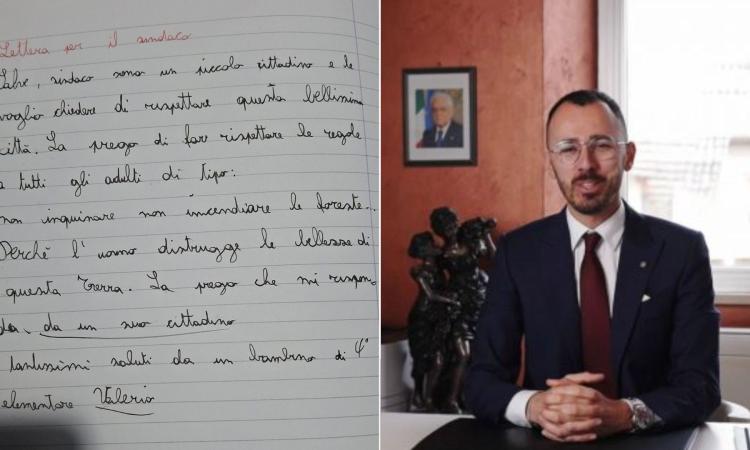 Lettera per il sindaco
Salve, sindaco sono un piccolo cittadino e le
voglio chiedere di rispettare questa bellissima
città. La prego di far rispettare le regole
a tutti gli adulti di tipo:
non inquinare non incendiare le foreste...
Perchè l'uomo distrugge le bellezze di
questa Terra. La prego che mi rispon
da, da un suo cittadino
tantissimi saluti da un bambino di 4°
elementare Valerio